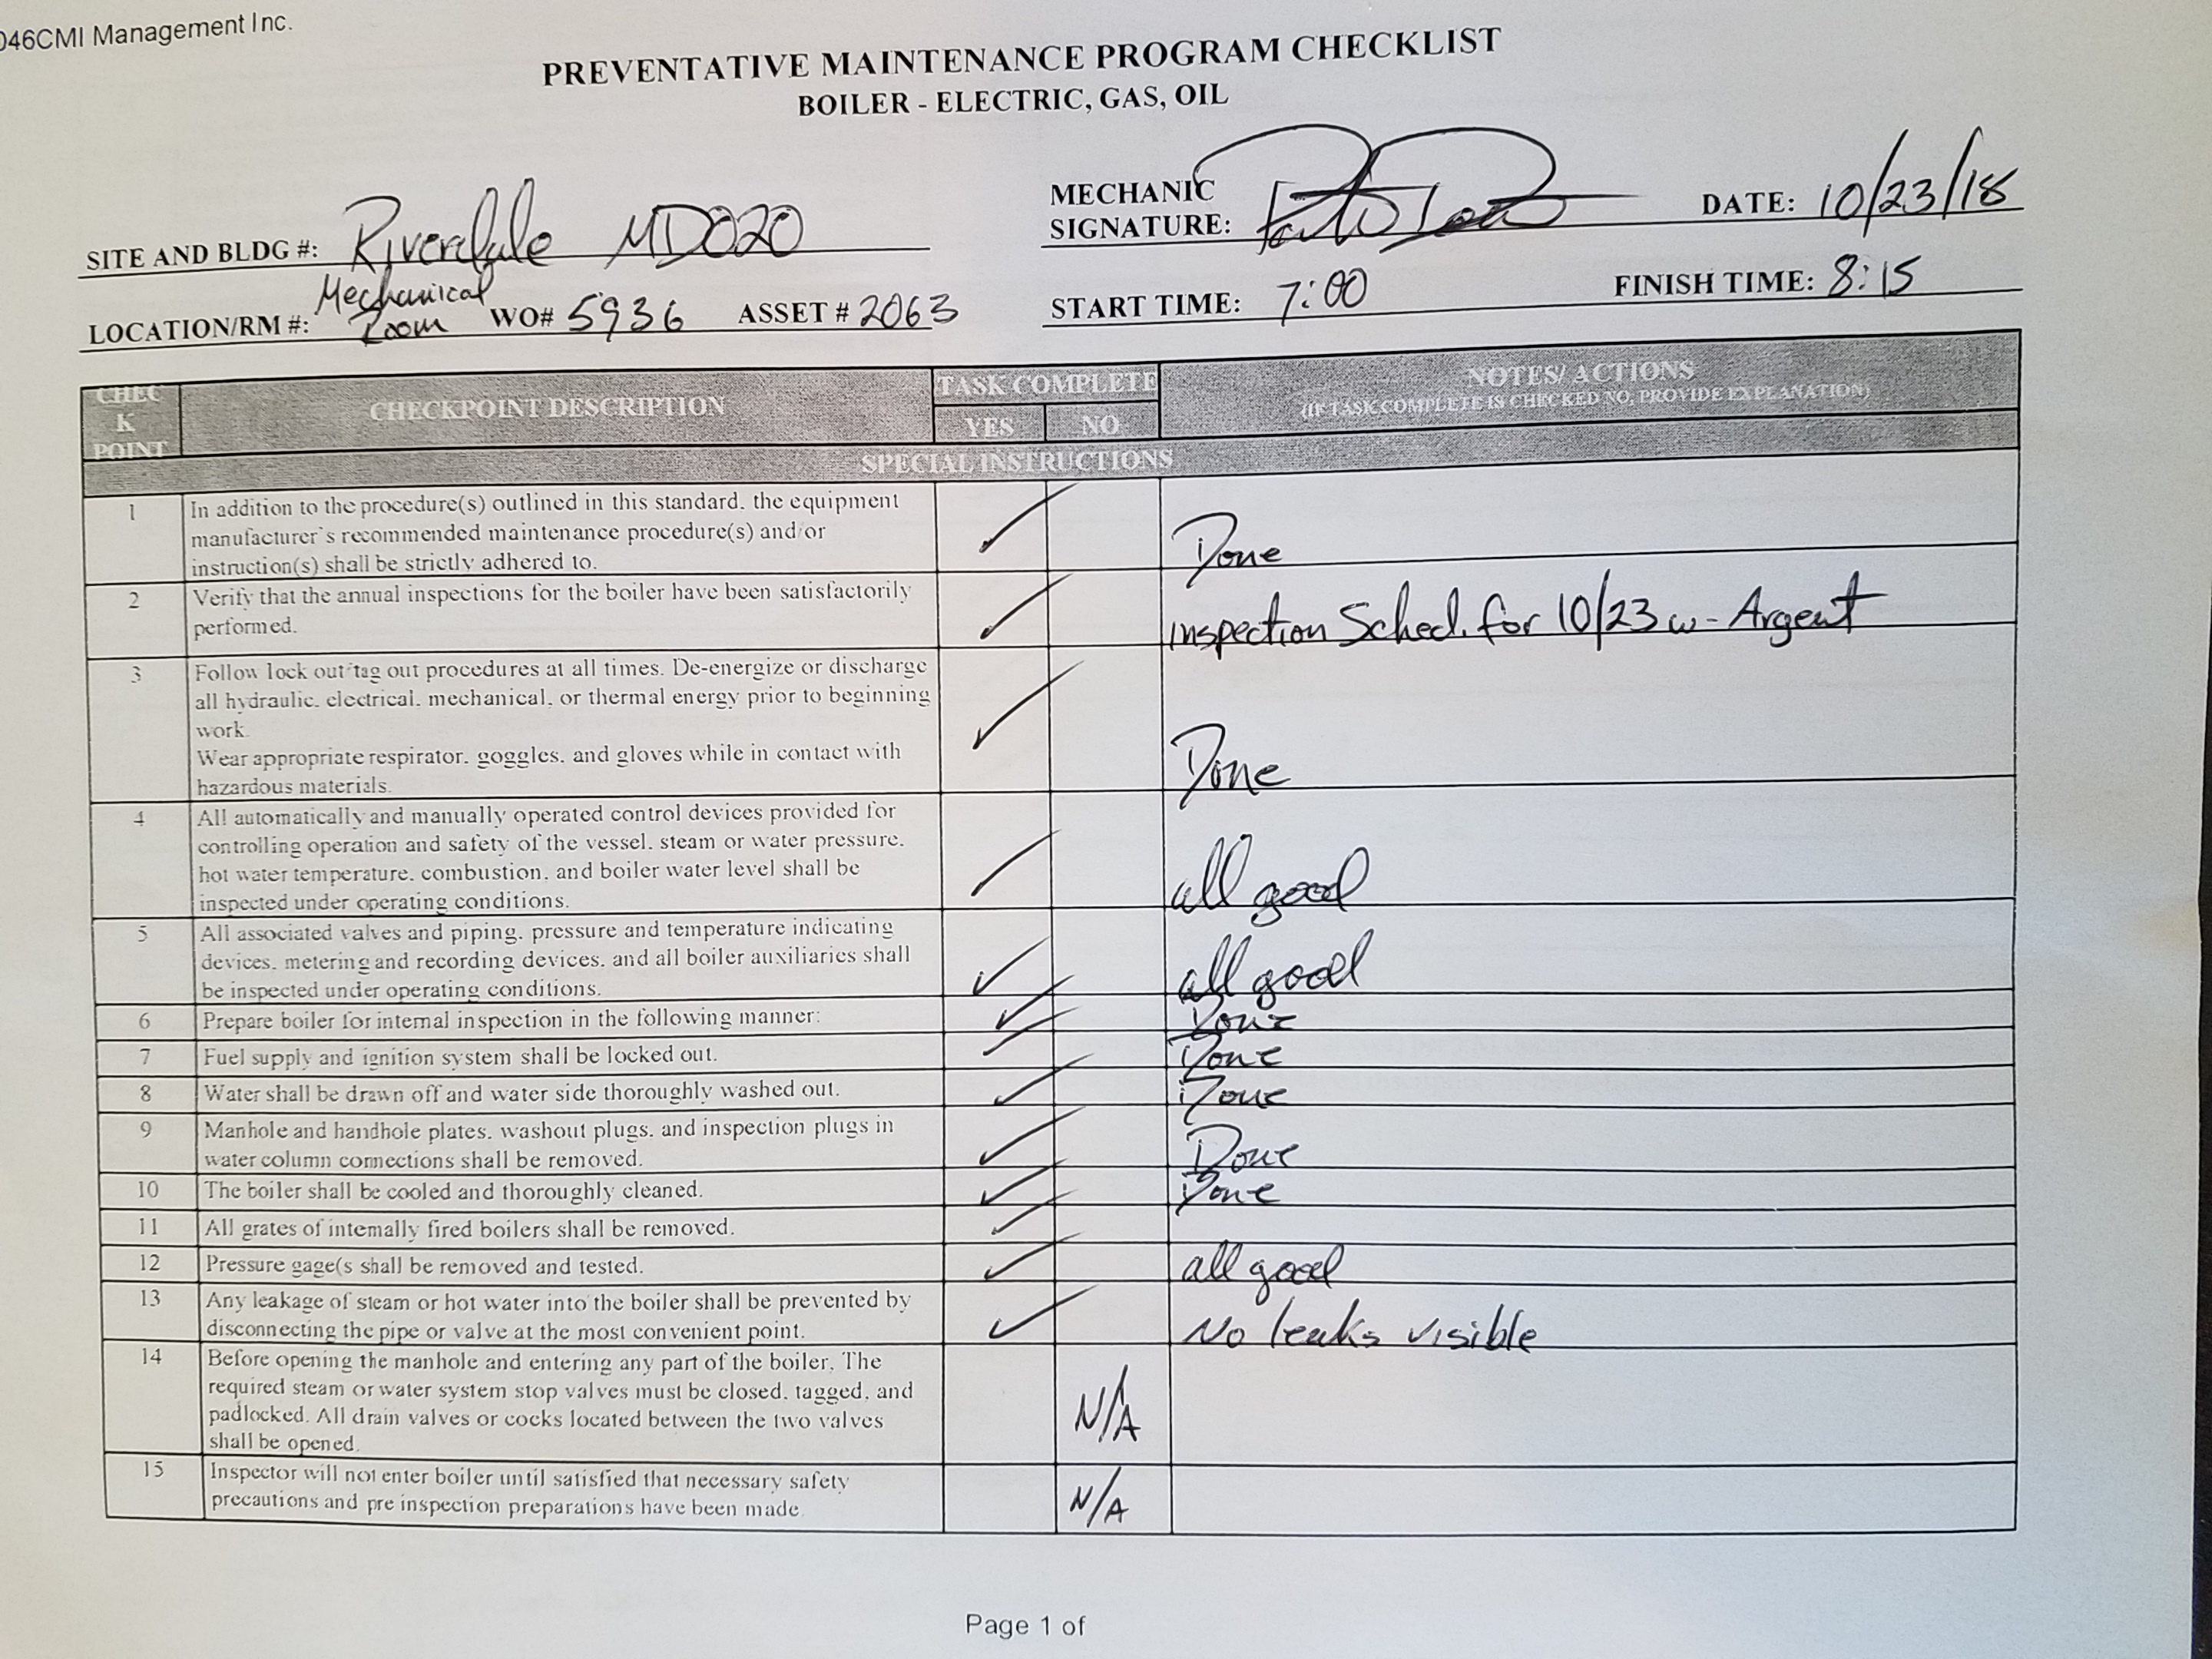 046CMI Management Inc.
PREVENTATIVE MAINTENANCE PROGRAM CHECKLIST
BOILER - ELECTRIC, GAS, OIL
SITE AND BLDG #: Riverdale MD020
MECHANIC
SIGNATURE:
DATE: 10/23/18
LOCATION/RM #: Mechanical
Room WO# 5936 ASSET # 2063
START TIME: 7:00 FINISH TIME: 8:15
CHEC
K
POINT
CHECKPOINT DESCRIPTION
TASK COMPLETE
YES NO
NOTES/ ACTIONS
(IF TASK COMPLETE IS CHECKED NO, PROVIDE EXPLANATION)
SPECIAL INSTRUCTIONS
1 In addition to the procedure(s) outlined in this standard, the equipment
manufacturer's recommended maintenance procedure(s) and/or
instruction(s) shall be strictly adhered to.
Done
2 Verify that the annual inspections for the boiler have been satisfactorily
performed.
inspection Sched. for 10/23 w- Argent
3 Follow lock out/tag out procedures at all times. De-energize or discharge
all hydraulic, electrical, mechanical, or thermal energy prior to beginning
work.
Wear appropriate respirator, goggles, and gloves while in contact with
hazardous materials.
Done
4 All automatically and manually operated control devices provided for
controlling operation and safety of the vessel, steam or water pressure,
hot water temperature, combustion, and boiler water level shall be
inspected under operating conditions.
all good
5 All associated valves and piping, pressure and temperature indicating
devices, metering and recording devices, and all boiler auxiliaries shall
be inspected under operating conditions.
all good
6 Prepare boiler for internal inspection in the following manner: Done
7 Fuel supply and ignition system shall be locked out. Done
8 Water shall be drawn off and water side thoroughly washed out. Done
9 Manhole and handhole plates, washout plugs, and inspection plugs in
water column connections shall be removed.
Done
10 The boiler shall be cooled and thoroughly cleaned. Done
11 All grates of internally fired boilers shall be removed.
12 Pressure gage(s shall be removed and tested. all good
13 Any leakage of steam or hot water into the boiler shall be prevented by
disconnecting the pipe or valve at the most convenient point.
No leaks visible
14 Before opening the manhole and entering any part of the boiler, The
required steam or water system stop valves must be closed, tagged, and
padlocked. All drain valves or cocks located between the two valves
shall be opened.
N/A
15 Inspector will not enter boiler until satisfied that necessary safety
precautions and pre inspection preparations have been made.
N/A
Page 1 of